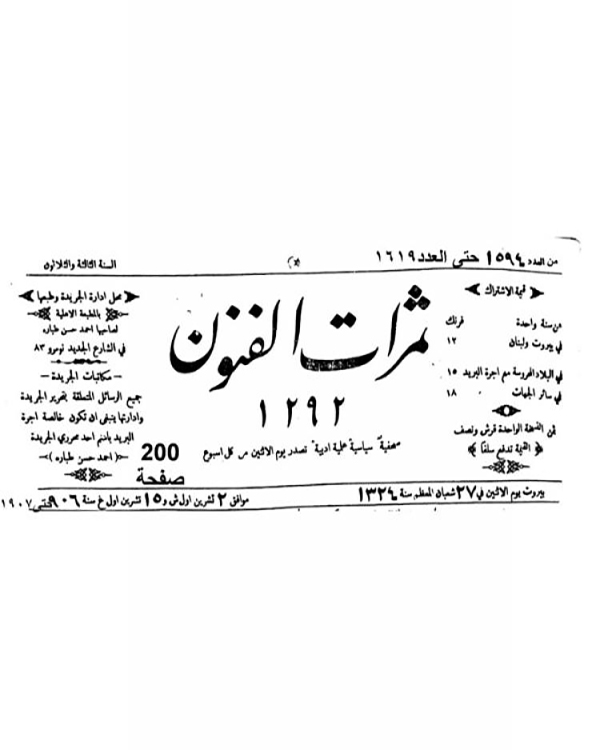 من العدد ١٥٩٤ حتى العدد ١٦١٩
السنة الثالثة والثلاثون
قيمة الاشتراك
عن سنة واحدة فرنك
في بيروت ولبنان ١٢
في البلاد المحروسة مع اجرة البريد ١٥
في سائر الجهات ١٨
ثمن النسخة الواحدة قرش ونصف
القيمة تدفع سلفاً
ثمرات الفنون
١٢٩٢
صحفية سياسية علمية ادبية تصدر يوم الاثنين من كل اسبوع
محل ادارة الجريدة وطبعها
بالمطبعة الاهلية
لصاحبها احمد حسن طباره
في الشارع الجديد نومرو ٨٣
— مكاتبات الجريدة —
جميع الرسائل المتعلقة بتحرير الجريدة
وادارتها ينبغي ان تكون خالصة اجرة
البريد باسم احد محرري الجريدة
(احمد حسن طباره)
200
صفحة
بيروت يوم الاثنين في ٢٧ شعبان المعظم سنة ١٣٢٤
موافق ٢ تشرين اول ش و ١٥ تشرين اول غ سنة ٩٠٦ حتى ١٩٠٧